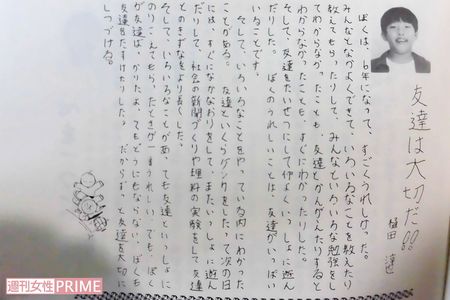 友達は大切だ!!
植田 達也
ぼくは、6年になって、すごくうれしかった。
みんなとなかよくできて、いろいろなことを教えたり
教えてもらったりして、みんなといろいろな勉強をし
てわからなかったことも、友達とかんがえたりすると
わからなかったことも、すぐにわかったりした。
そして、友達をたいせつにして仲よく、いっしょに遊ん
だりした。ぼくのうれしいことは、友達がいっぱい
いることです。
そして、いろいろなことをやっている内にわかった
ことがある。友達といくらケンカをしたって次の日
には、すぐになかなおりをして、またいっしょに遊ん
だりして、社会の新聞づくりや理科の実験をして友達
とのきずなをより長とした。
そして、いろいろなことがあっても友達といっしょに
のりこえてもらったときが一番うれしい。でも、ぼく
が友達ばっかりたよってもどうにもならない。ぼくも
友達をたすけたりした。だからずっと友達を大切に
しつづける。
週刊女性PRIME